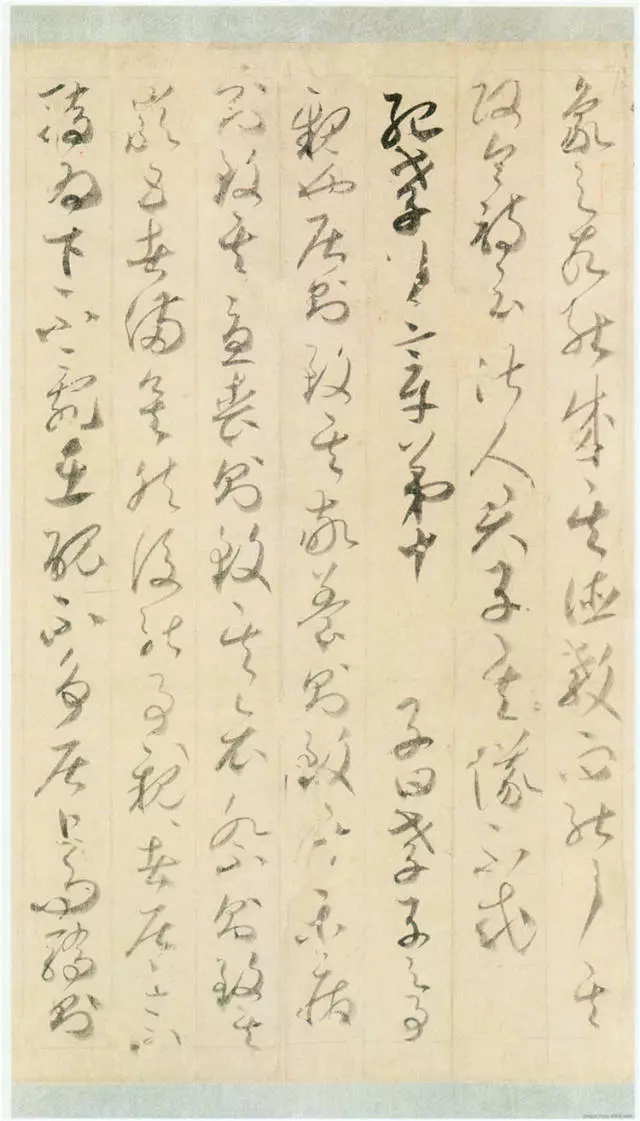 象之故能成其德教而能行其
政令詩云淑人君子其儀不忒
紀孝行章第十 子曰孝子之事
親也居則致其敬養則致其樂病
則致其憂喪則致其哀祭則致其
嚴五者備矣然後能事親〻者居上不
驕為下不亂在醜不爭居上而驕則